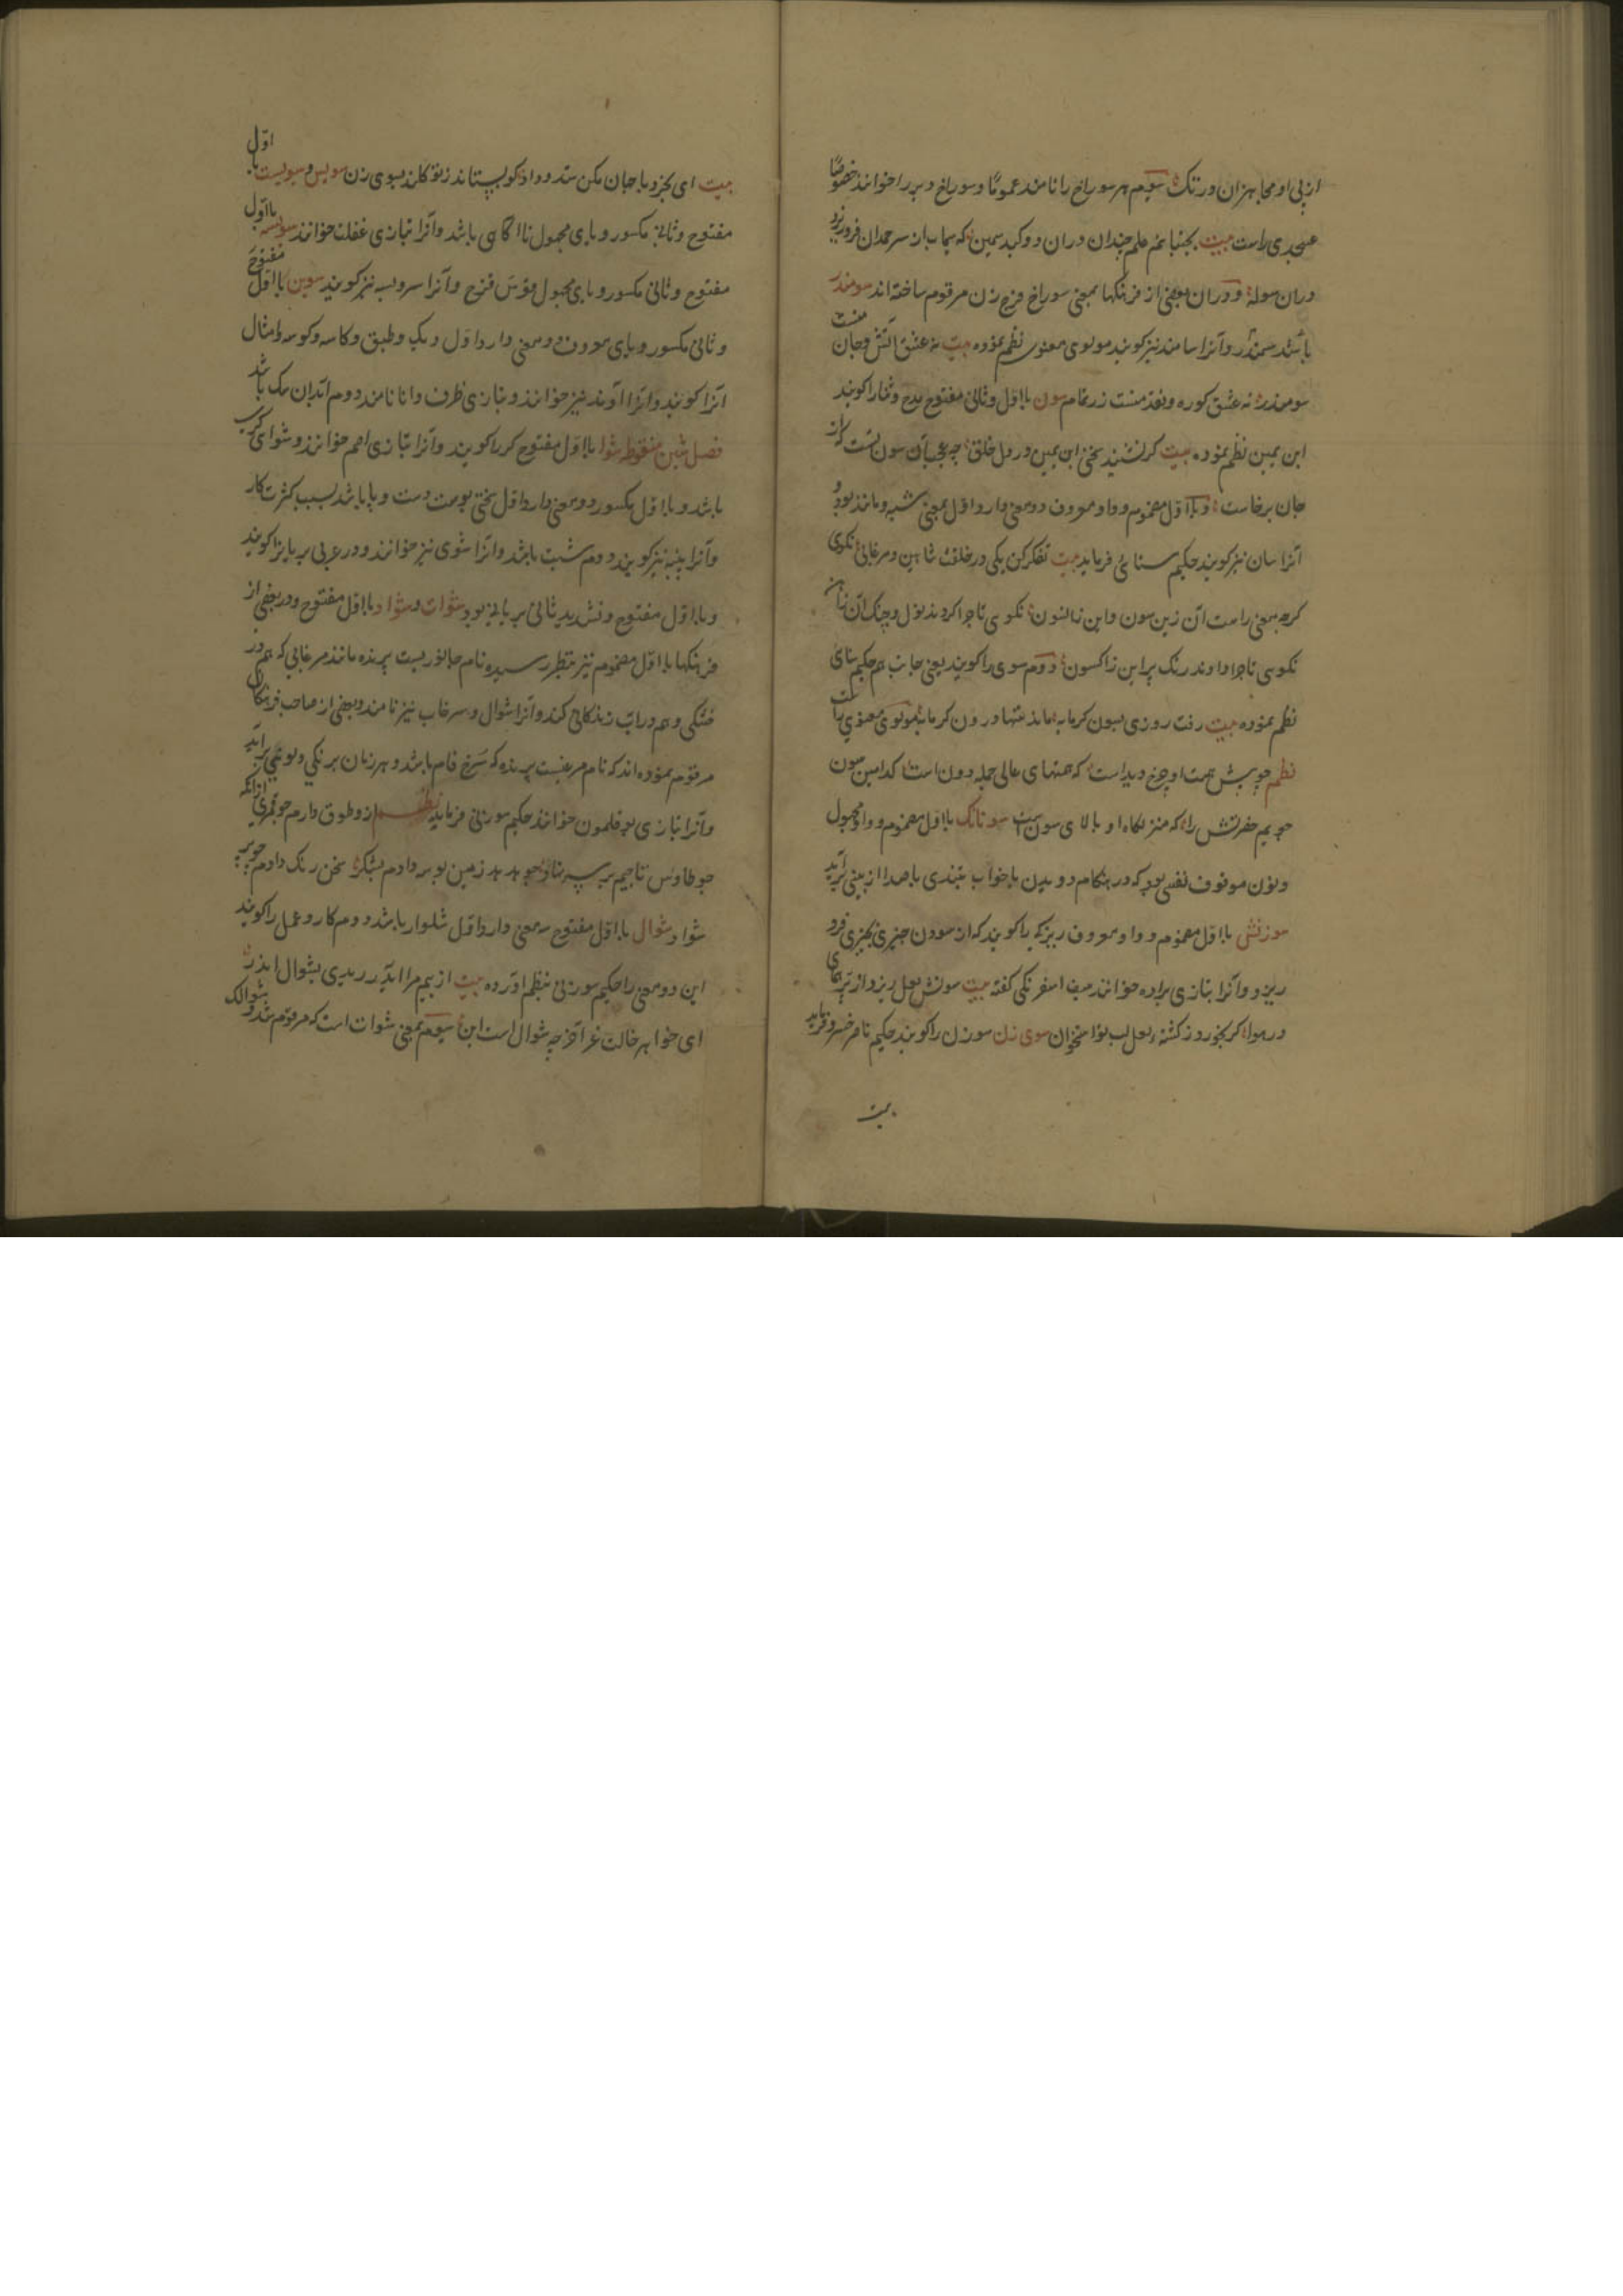 از پی او مجاهزان در تک سیوم هر سوراخ را نامند عموما و سوراخ دبر را خوانند خصوصا
عسجدی راست بیت بجنبانم علم چندان در ان دو کنبد سیمین که سیماب از سر حمدان فرو ریزد
دران سوله و در ان بعضی از فرهنکها بمعنی سوراخ فرج زن مرقوم ساخته اند سومندر
باشد سمندر و آنرا سامندر نیز کویند مولوی معنوی نظم نموده بیت نه عشق آتش و جان منست
سومندر نه عشق کوره و نقد منست زر تمام سون با اول و ثانی مفتوح مدح و ثنا را کویند
ابن یمین نظم نموده بیت کر نشنید سخن ابن یمین در دل خلق چه عجب آن سون تست که از
جان برخاست و با اول مضموم و واو معروف دو معنی دارد اول بمعنی شبه و مانند بود و
آنرا سان نیز کویند حکیم سنائی فرماید بیت تفکر کن یکی در خلقت شاهین و مرغابی نکوی
کره بمعنی راست آن زین سون و این زانسون
نکوی تا چرا دادند رنک پر این زاکسون دوم سوی را کویند یعنی جانب هم حکیم سنائی
نظم نموده بیت رفت روزی بسون کرمابه ماند تنها درون کرمابه مولوی معنوی راست
نظم چو پیش همت او چرخ دید است که همتهای عالی جمله دون است کدامین سون
جویم حضرتش را که منزلکاه او بالای سون است سونانک با اول مضموم و واو مجهول
و نون موقوف نفسی بود که در هنکام دویدن یا خواب بتندی با صدا از بینی برآید
سوزنش با اول مضموم و واو معروف ریزکی را کویند که از سودن چیزی بچیزی فرو
ریزد و آنرا بتازی براده خوانند سیف اسفرنکی کفته بیت سونش لعل ریزد از پر همای
در هوا کر بخورد ز کشته لعل لب تو استخوان سوی زن سوزن را کویند حکیم ناصر خسرو فرماید
بیت
بیت ای بخرد با جهان مکن ستد و داد کو بستاند ز تو کلند بسوی زن سویس و سویست با اول
مفتوح و ثانی مکسور و یای مجهول نااکاهی باشد و آنرا بتازی غفلت خوانند سویسه با اول
مفتوح و ثانی مکسور و یای مجهول قوس قزح و آنرا سرویسه نیز کویند سوین با اول مفتوح
و ثانی مکسور و یای معروف دو معنی دارد اول دیک و طبق و کاسه و کوزه و امثال
آنرا کویند و آنرا آوند نیز خوانند و بتازی ظرف و انا نامند دوم آبدان سک باشد
فصل شین منقوطه شوا با اول مفتوح کر را کویند و آنرا بتازی اصم خوانند و شوای کری
باشد و با اول مکسور دو معنی دارد اول سختی پوست دست و پا باشد بسبب کثرت کار
و آنرا پینه نیز کویند دوم شبت باشد و آنرا شوی نیز خوانند و در عربی بریانرا کویند
و با اول مفتوح و تشدید ثانی بریانی بود شوات و شواد با اول مفتوح و در بعضی از
فرهنکها با اول مضموم نیز بنظر رسیده نام جانوریست پرنده مانند مرغابی که هم در
خشکی و هم در آب زندکانی کند و آنرا شوال و سرخاب نیز نامند و بعضی از صاحب فرهنکان
مرقوم نموده اند که نام مرغیست پرنده که سرخ فام باشد و هر زمان برنکی و لونی برآید
و آنرا بتازی بوقلمون خوانند حکیم سوزنی فرماید نظم از و طوق دارم چو قمری ازانکه
چو طاوس تاجم بر سر نهاد چو هدهد زمین بوسه دادم بشکر سخن رنک دادم چو پر
شواد شوال با اول مفتوح سه معنی دارد اول شلوار باشد دوم کار و عمل را کویند
این دو معنی را حکیم سوزنی بنظم آورده بیت از بیم مرا آید رریدی بشوال اندر
ای خواهر خالت غر آخر چه شوال است این سیوم بمعنی شوات است که مرقوم شد شوالک